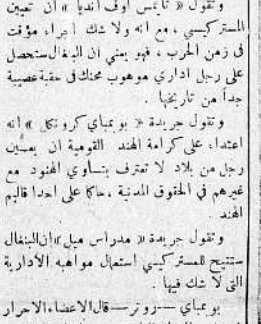 وتقول « تايمس اوف انديا » ان تعيين
المستر كيسي ، مع انه ولا شك اجراء مؤقت
في زمن الحرب ، فهو يعني ان البنغال ستحصل
على رجل اداري موهوب محنك في حقبة عصيبة
جداً من تاريخها .
وتقول جريدة « بومباي كرونكل » انه
اعتداء على كرامة الهند القومية ان يعيَّن
رجل من بلاد لا تعترف بتساوي الهنود مع
غيرهم في الحقوق المدنية ، حاكما على احد اقاليم
الهند .
وتقول جريدة « مدراس ميل » ان البنغال
ستتيح للمستر كيسي استعمال مواهبه الادارية
التي لا شك فيها .
بومباي — روتر — قال الاعضاء الاحرار